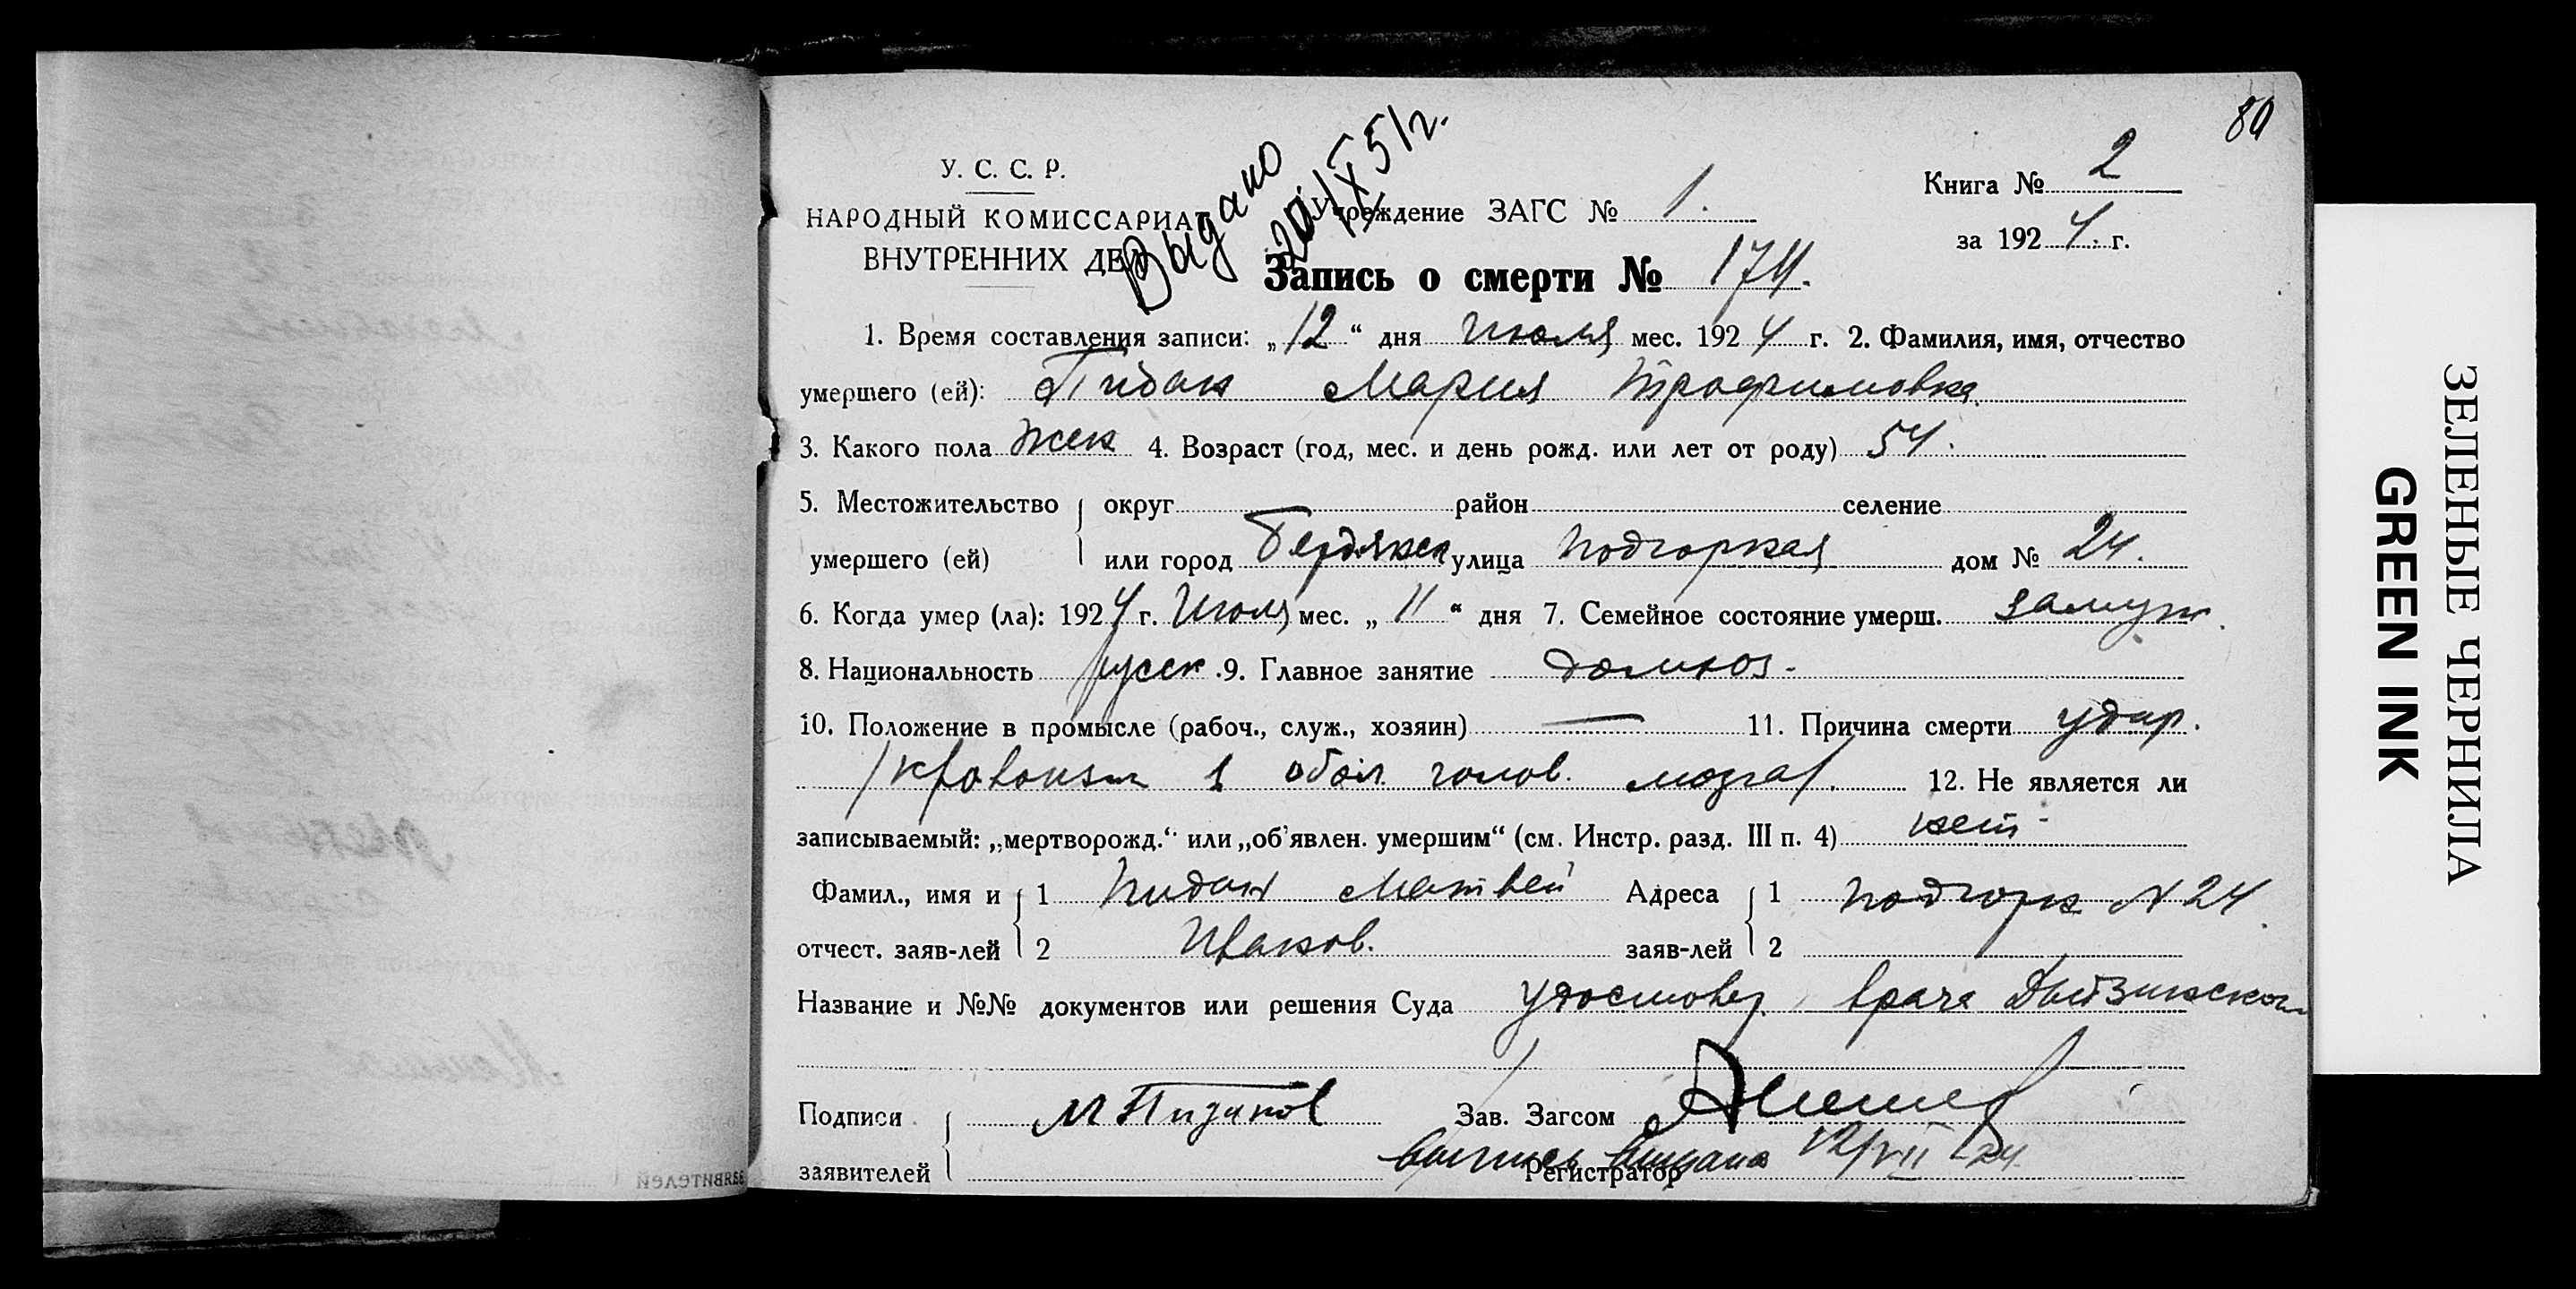 80
У. С. С. Р.
НАРОДНЫЙ КОМИССАРИАТ
ВНУТРЕННИХ ДЕЛ
Выдано
20/IX 51г.
Учреждение ЗАГС № 1.
Книга № 2
за 1924. г.
Запись о смерти № 174.
1. Время составления записи: „12“ дня Июля мес. 1924 г. 2. Фамилия, имя, отчество
умершего (ей): Пидан Мария Трофимовна
3. Какого пола жен 4. Возраст (год, мес. и день рожд. или лет от роду) 54.
5. Местожительство округ район селение
умершего (ей) или город Бердянск улица Подгорная дом № 24.
6. Когда умер (ла): 1924 г. Июля мес. „11“ дня 7. Семейное состояние умерш. замуж.
8. Национальность русск. 9. Главное занятие домхоз-
10. Положение в промысле (рабоч., служ., хозяин) — 11. Причина смерти удар.
/кровоизл в обол голов. мозга/. 12. Не является ли
записываемый: „мертворожд.“ или „об'явлен. умершим“ (см. Инстр. разд. III п. 4) нет-
Фамил., имя и 1 Пидан Матвей Адреса 1 Подгорн N 24.
отчест. заяв-лей 2 Иванов. заяв-лей 2
Название и №№ документов или решения Суда Удостовер. врача
Подписи М Пиданов Зав. Загсом
заявителей Регистратор
выпись выдана 12/VII 24
заявителей
ЗЕЛЕНЫЕ ЧЕРНИЛА
GREEN INK